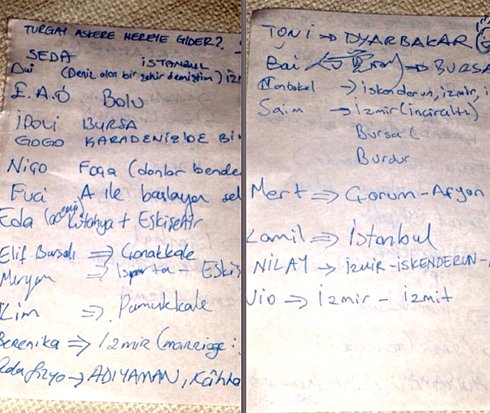 TURGAY ASKERE NEREYE GİDER?
SEDA İSTANBUL
Dui (Deniz olan bir şehir demiştim) izm
E.A.Ö Bolu
İPOLİ BURSA
GOGO KARADENİZ'DE Bİ
NİGO Foça (donlar bende
Fuci A ile başlayan şeh
Eda Kütahya + Eskişehir
Elif Bursalı ⇒ Çanakkale
Meryem ⇒ Isparta + Eskiş
Kim ⇒ Pamukkale
Berenika ⇒ İzmir (marriage i
⇒ ADIYAMAN, Kâhta
TONİ ⇒ DYARBAKAR
⇒ BURSA
⇒ iskenderun, izmir, i
Saim → İzmir (inciraltı)
Bursa (
Burdur
Mert ⇒ Çorum - Afyon
Kamil ⇒ İstanbul
NİLAY ⇒ izmir - İSKENDERUN -
⇒ İzmir - izmit